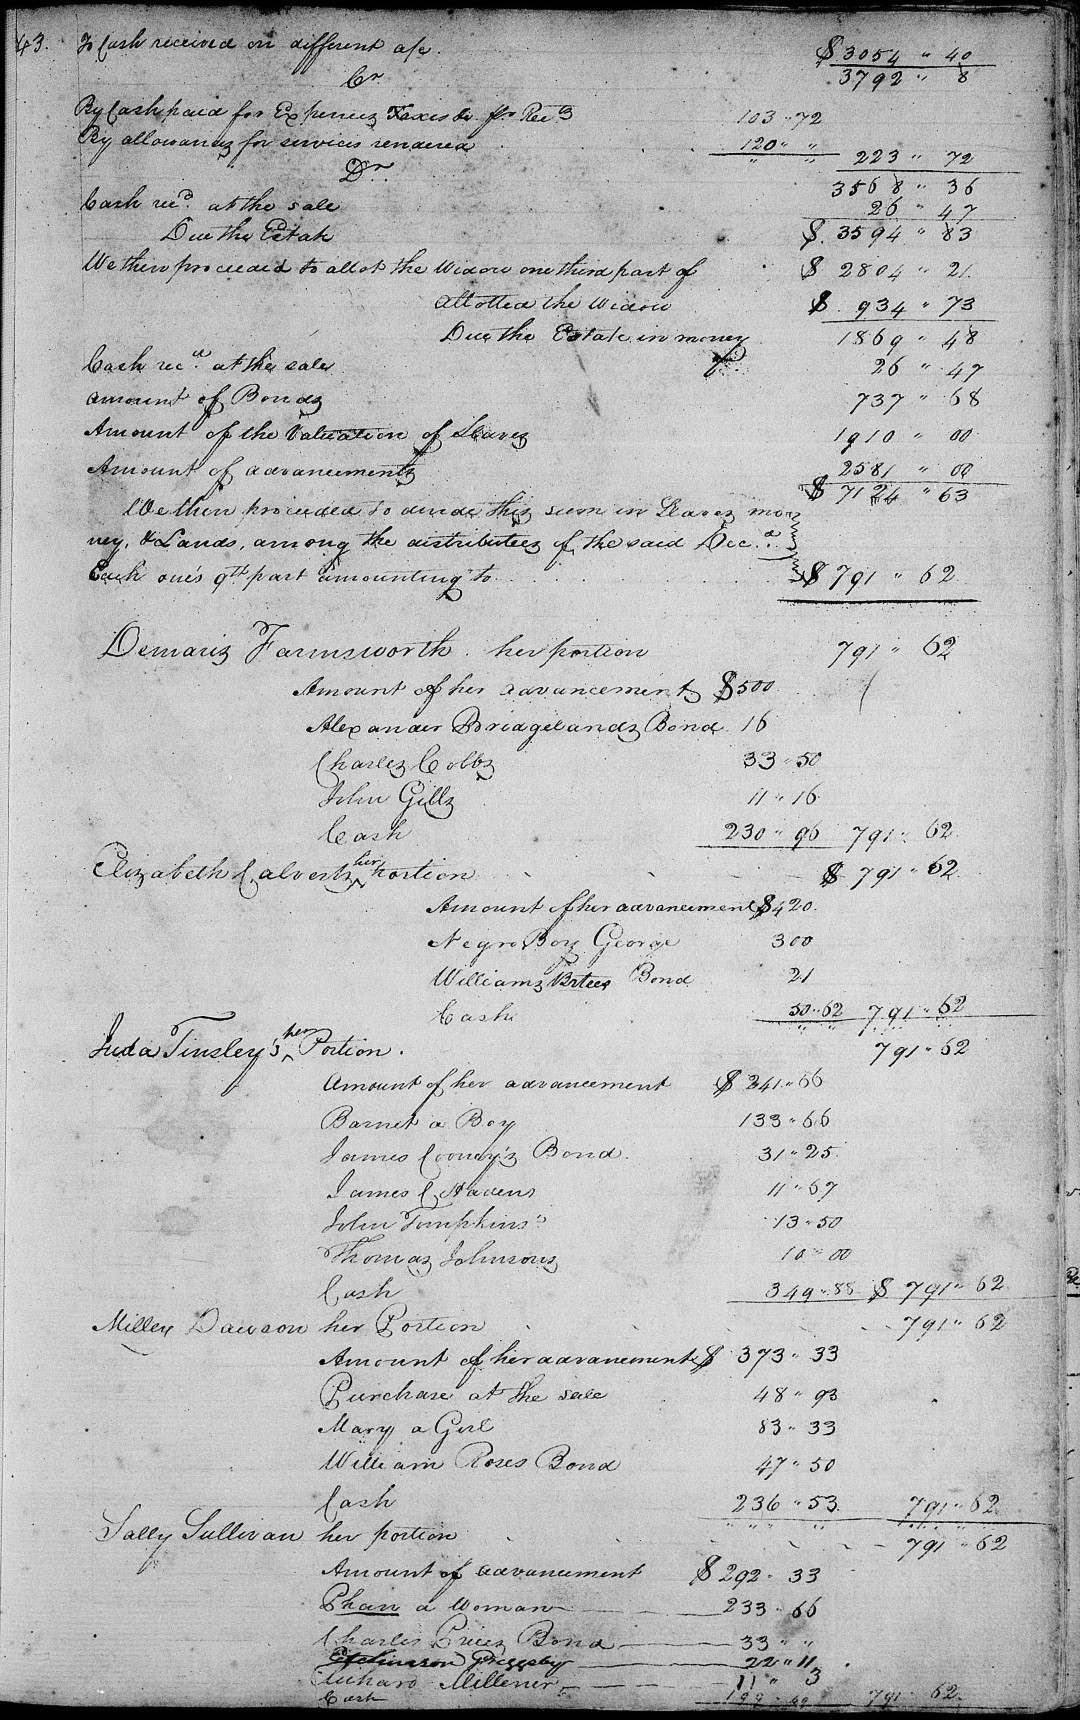 43. To Cash received on different a/c. $3054 " 40
3792 " 8
Cr
By Cash paid for Expences Taxes &c pr Rec3 103 " 72
By allowances for services rendered 120 " " 223 " 72
3568 " 36
Dr.
Cash recd. at the sale 26 " 47
Due the Estate $. 3594 " 83
We then proceeded to allot the Widow one third part of $ 2804 " 21
Allotted the Widow $ 934 " 73
Due the Estate in money 1869 " 48
Cash recd. at the sale 26 " 47
amount of Bonds 737 " 68
Amount of the Valuation of Slaves 1910 " 00
Amount of advancements 2581 " 00
$ 7124 " 63
We then proceeded to devide this sum in Slaves mo=
ney, & Lands, among the distributees of the said Decd.
Each one's 9th part amounting to $ 791 " 62
Demaris Farmsworth her portion 791 " 62
Amount of her advancements $500
Alexander Bridgelands Bond 16
Charles Cobbs 33 " 50
John Gills 11 " 16
Cash 230 " 96 791 " 62
Elizabeth Calverts her Portion $ 791 " 62
Amount of her advancement $420
Negro Boy George 300
Williams Bond 21
Cash 50 " 62 791 " 62
Juda Tinsley's her Portion. 791 " 62
Amount of her advancement $ 241 " 66
Barnet a Boy 133 " 66
James Cooney's Bond. 31 " 25
James C Hadens 11 " 67
John Tompkins" 13 " 50
Thomas Johnsons 10 " 00
Cash 349 " 88 $ 791 " 62
Milley Dawson her Portion 791 " 62
Amount of her advancements $ 373 " 33
Purchase at the sale 48 " 93
Mary a Girl 83 " 33
William Roses Bond 47 " 50
Cash 236 " 53 791 " 62
Sally Sullivan her portion 791 " 62
Amount of advancement $ 292 " 33
Phan a Woman 233 " 66
Charles Prices Bond 33 " "
Grigsby 22 " 11
Richard Millener 11 " 3
Cash 199 791 " 62